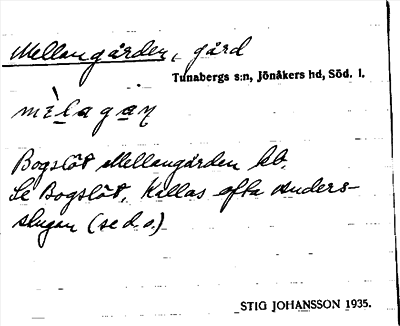 Mellangården, gård
Tunabergs s:n, Jönåkers hd, Söd. l.
Bogslöt Mellangården hb.
Se Bogslöt. Kallas ofta Anders-
stugan (se d.o.)
STIG JOHANSSON 1935.